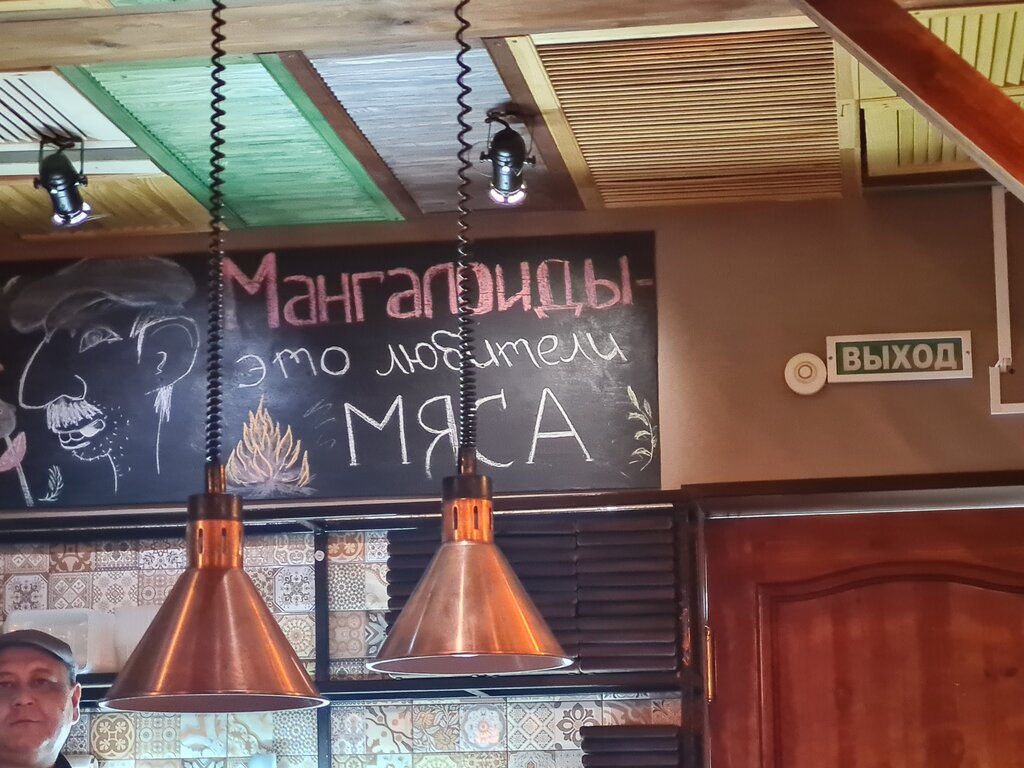 Мангалоиды-
это любители
МЯСА
ВЫХОД